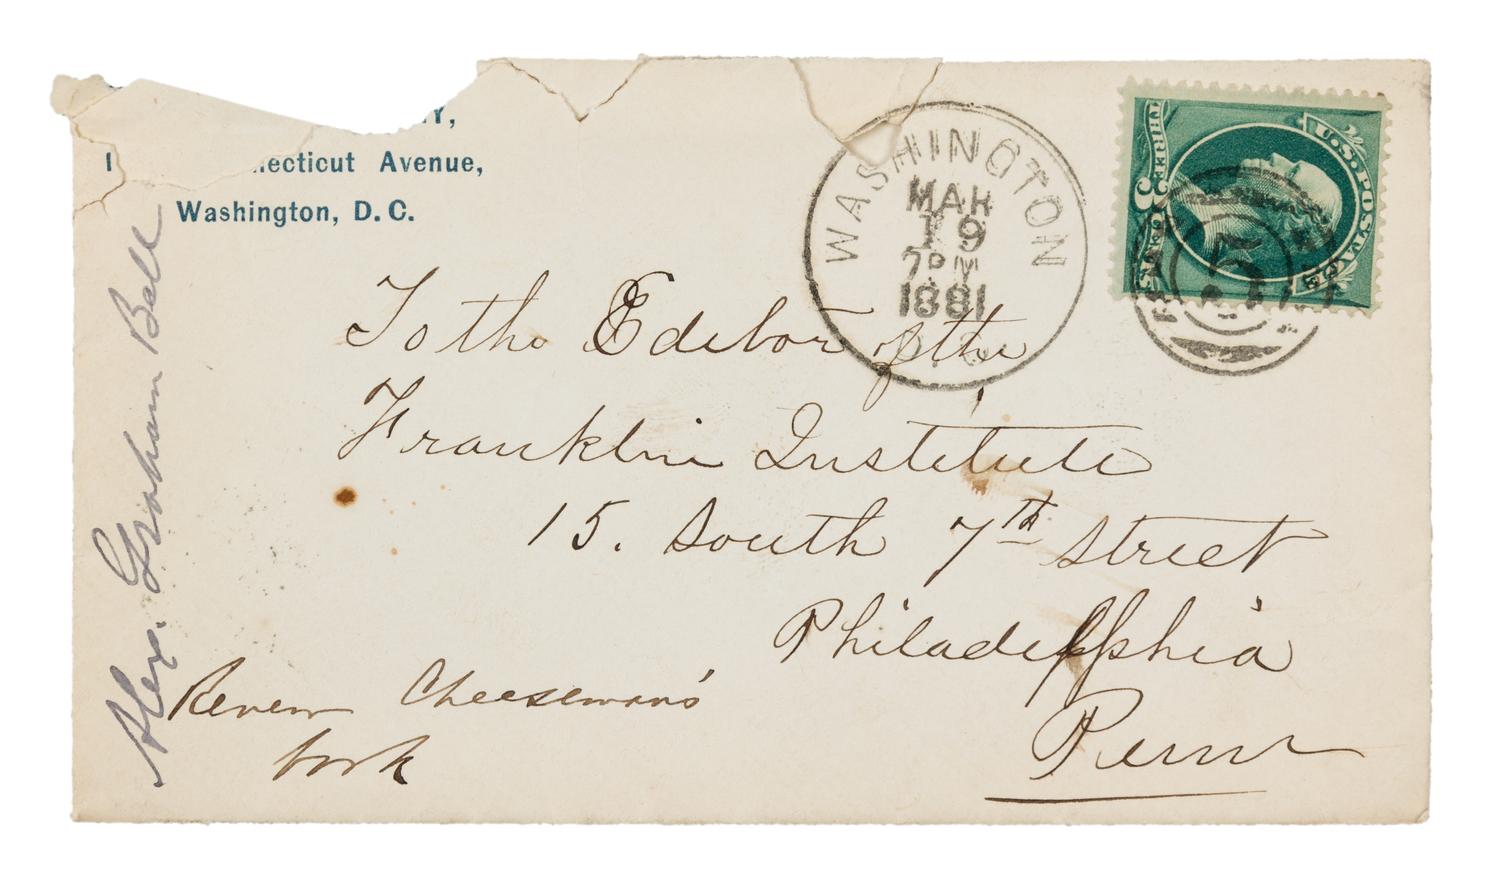 Y,
necticut Avenue,
Washington, D. C.
WASHINGTON
MAR
19
7PM
1881
D. C.
U.S. POSTAGE
THREE
3
CENTS
5
To the Editor of the
Franklin Institute
15. South 7th Street
Philadelphia
Penn
Alex. Graham Bell
Review Cheeseman's
book